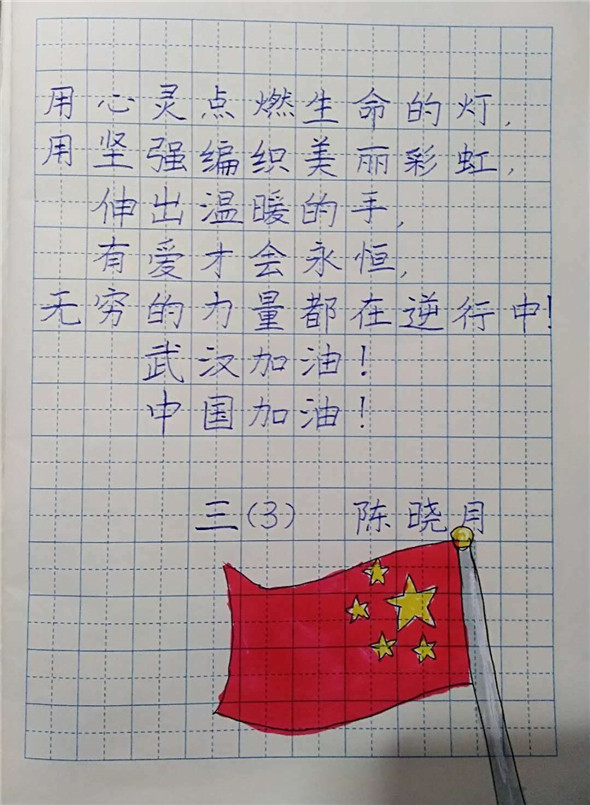 用心灵点燃生命的灯,
用坚强编织美丽彩虹,
伸出温暖的手,
有爱才会永恒,
无穷的力量都在逆行中!
武汉加油!
中国加油!
三(3) 陈晓月